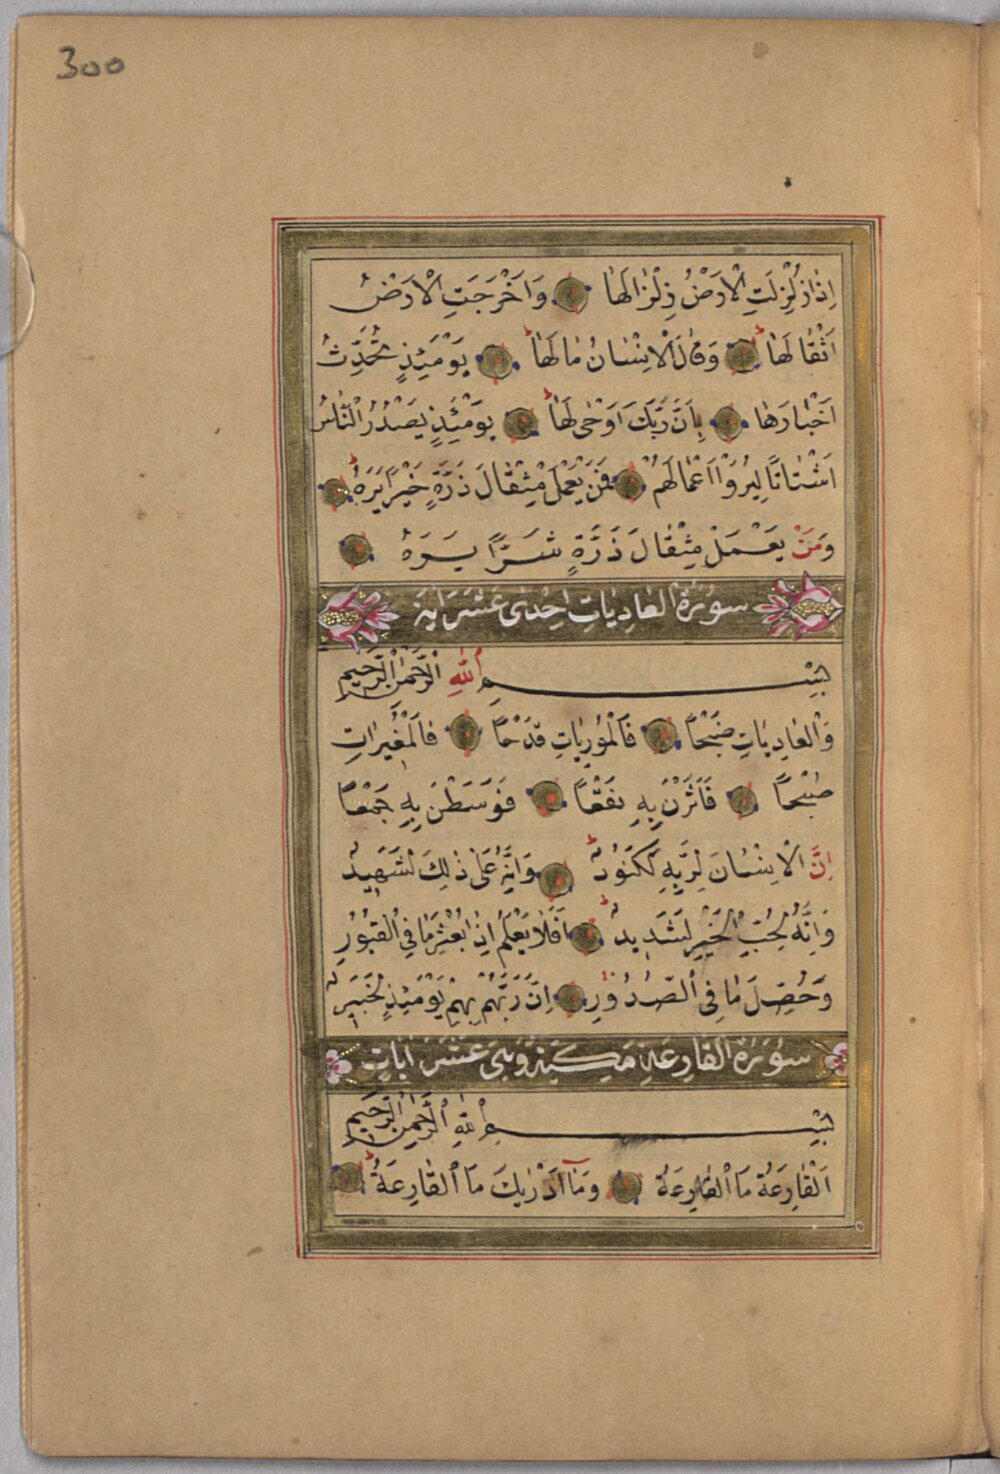 300
اِذَا زُلْزِلَتِ الْاَرْضُ زِلْزَالَهَا وَاَخْرَجَتِ الْاَرْضُ
اَثْقَالَهَا وَقَالَ الْاِنْسَانُ مَا لَهَا يَوْمَئِذٍ تُحَدِّثُ
اَخْبَارَهَا بِاَنَّ رَبَّكَ اَوْحٰى لَهَا يَوْمَئِذٍ يَصْدُرُ النَّاسُ
اَشْتَاتًا لِيُرَوْا اَعْمَالَهُمْ فَمَنْ يَعْمَلْ مِثْقَالَ ذَرَّةٍ خَيْرًا يَرَهُ
وَمَنْ يَعْمَلْ مِثْقَالَ ذَرَّةٍ شَرًّا يَرَهُ
سُورَةُ الْعَادِيَاتِ اِحْدٰى عَشَرَ اٰيَة
بِسْمِ اللّٰهِ الرَّحْمٰنِ الرَّحِيمِ
وَالْعَادِيَاتِ ضَبْحًا فَالْمُورِيَاتِ قَدْحًا فَالْمُغِيرَاتِ
صُبْحًا فَاَثَرْنَ بِهِ نَقْعًا فَوَسَطْنَ بِهِ جَمْعًا
اِنَّ الْاِنْسَانَ لِرَبِّهِ لَكَنُودٌ وَاِنَّهُ عَلٰى ذٰلِكَ لَشَهِيدٌ
وَاِنَّهُ لِحُبِّ الْخَيْرِ لَشَدِيدٌ اَفَلَا يَعْلَمُ اِذَا بُعْثِرَ مَا فِي الْقُبُورِ
وَحُصِّلَ مَا فِي الصُّدُورِ اِنَّ رَبَّهُمْ بِهِمْ يَوْمَئِذٍ لَخَبِيرٌ
سُورَةُ الْقَارِعَةِ مَكِّيَّة وَهِيَ عَشَرَ اٰيَاتٍ
بِسْمِ اللّٰهِ الرَّحْمٰنِ الرَّحِيمِ
اَلْقَارِعَةُ مَا الْقَارِعَةُ وَمَا اَدْرٰيكَ مَا الْقَارِعَةُ